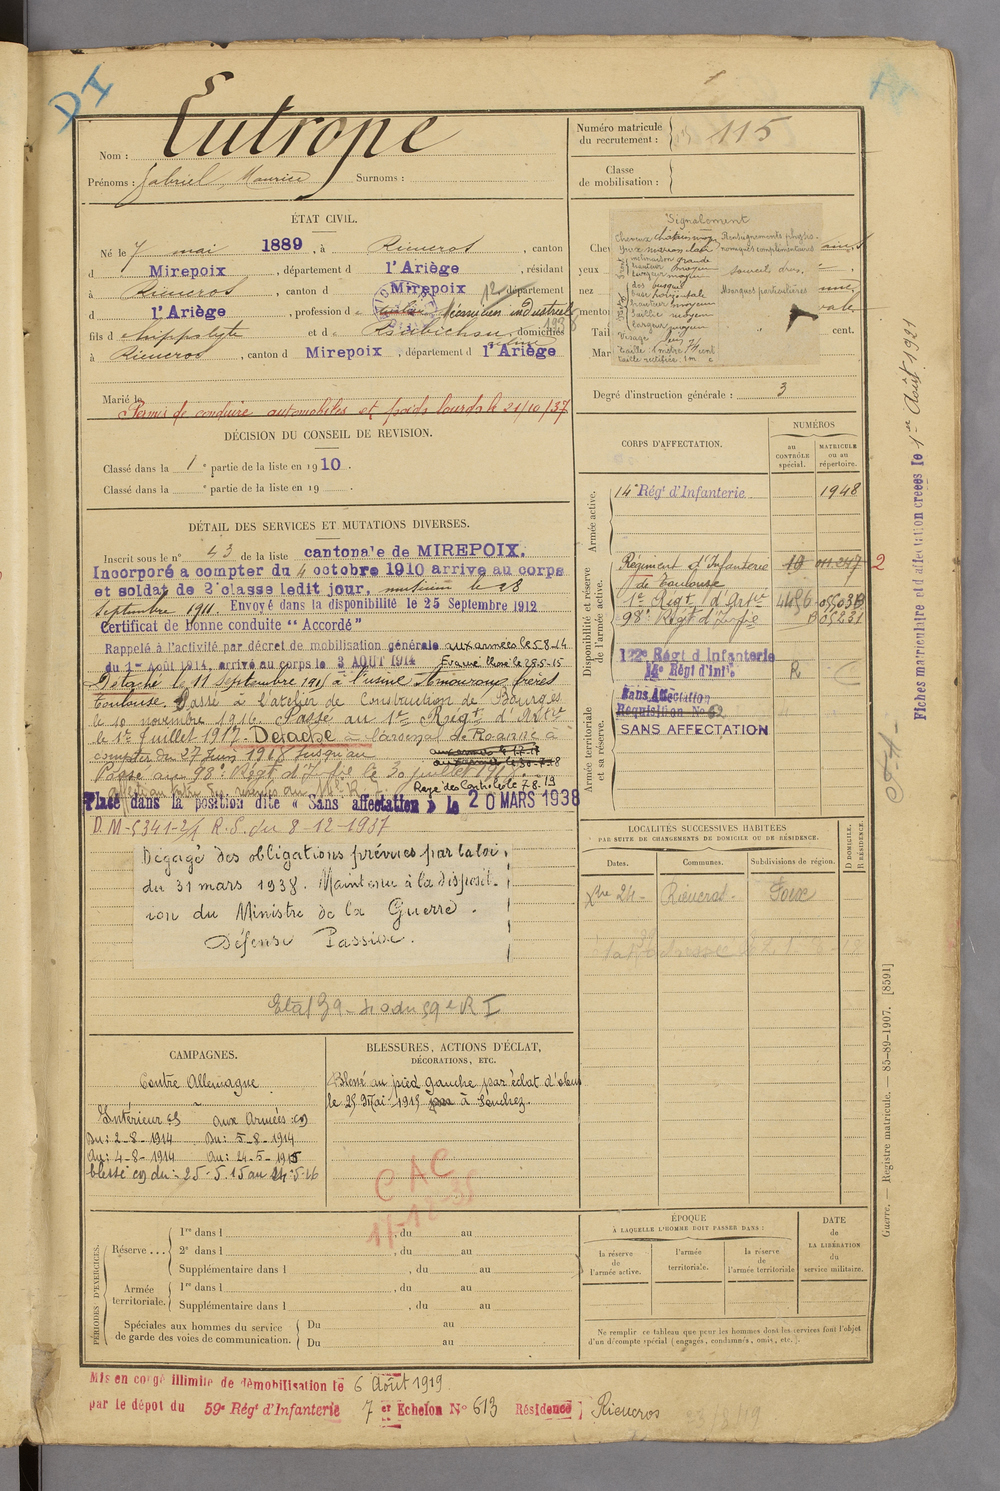 DI
Nom : Eutrope
Prénoms : Gabriel, Maurice Surnoms :
Numéro matricule du recrutement : 115
Classe de mobilisation :
ÉTAT CIVIL.
Né le 7 mai 1889, à Rieucros, canton
d Mirepoix, département d l'Ariège, résidant
à Rieucros, canton d Mirepoix, département
d l'Ariège, profession de Mécanicien industriel
fils d Hippolyte et de domiciliés
à Rieucros, canton d Mirepoix, département d l'Ariège
Marié le
Permis de conduire automobiles et poids lourds le 21/10/37
Signalement
Cheveux châtain Renseignements physio-
Yeux marron clair nomiques complémentaires
inclinaison grande
hauteur moyen
largeur moyen
sourcil drus.
dos busqué
base horizontale
hauteur moyenne
saillie moyen
largeur moyen
Marques particulières
Visage
Taille 1 mètre 71 cent
Taille rectifiée 1m c
yeux
nez
cent.
Degré d'instruction générale : 3
DÉCISION DU CONSEIL DE REVISION.
Classé dans la 1e partie de la liste en 1910.
Classé dans la e partie de la liste en 19 .
CORPS D'AFFECTATION.
NUMÉROS
au CONTRÔLE spécial.
MATRICULE ou au répertoire.
Armée active.
14e Régt d'Infanterie 1948
Disponibilité et réserve de l'armée active.
Régiment d'Infanterie de Toulouse 2
1er Régt d'Artie 4496
98e Régt d'Infie
122e Régt d'Infanterie
R
Armée territoriale et sa réserve.
Sans Affectation
Réquisition No 62
SANS AFFECTATION
DÉTAIL DES SERVICES ET MUTATIONS DIVERSES.
Inscrit sous le n° 43 de la liste cantonale de MIREPOIX.
Incorporé a compter du 4 octobre 1910 arrivé au corps
et soldat de 2e classe ledit jour, musicien le 28
Septembre 1911. Envoyé dans la disponibilité le 25 Septembre 1912
Certificat de bonne conduite "Accordé"
Rappelé à l'activité par décret de mobilisation générale aux armées le 5-8-14
du 1er Août 1914, arrivé au corps le 3 AOUT 1914 Evacué blessé le 25-5-15
Détaché le 11 Septembre 1915 à l'usine Amouroux frères
Toulouse. Passé à l'atelier de Construction de Bourges
le 10 novembre 1916. Passé au 1er Régt d'Artie
le 1er Juillet 1917. Détaché à l'arsenal de Roanne à
compter du 27 Juin 1918 jusqu'au
Passé au 98e Régt d'Infie le 30 juillet
Rayé des Contrôles le 7.8.19
Placé dans la position dite « Sans affectation » le 20 MARS 1938
D.M-5341-2/1 R.S. du 8-12-1937
Dégagé des obligations prévues par la loi
du 31 mars 1938. Maintenu à la disposit-
ion du Ministre de la Guerre.
Défense Passive.
LOCALITÉS SUCCESSIVES HABITÉES
PAR SUITE DE CHANGEMENTS DE DOMICILE OU DE RÉSIDENCE.
Dates. Communes. Subdivisions de région.
D DOMICILE. R RÉSIDENCE.
Xbre 24 - Rieucros - Foix
CAMPAGNES.
Contre Allemagne
Intérieur cs aux Armées cd
Du : 2-8-1914 Du : 5-8-1914
Au : 4-8-1914 Au : 24-5-1915
blessé cd du : 25-5.15 au 24-5-16
BLESSURES, ACTIONS D'ÉCLAT,
DÉCORATIONS, ETC.
Blessé au pied gauche par éclat d'obus
le 25 Mai 1915 à Souchez.
CAC
PÉRIODES D'EXERCICES.
Réserve ... 1re dans l , du au
2e dans l , du au
Supplémentaire dans l , du au
Armée territoriale. 1re dans l , du au
Supplémentaire dans l , du au
Spéciales aux hommes du service de garde des voies de communication. Du au
Du au
ÉPOQUE
À LAQUELLE L'HOMME DOIT PASSER DANS :
la réserve de l'armée active.
l'armée territoriale.
la réserve de l'armée territoriale
DATE de LA LIBÉRATION du service militaire.
Ne remplir ce tableau que pour les hommes dont les services font l'objet
d'un décompte spécial (engagés, condamnés, omis, etc.).
Mis en congé illimité de démobilisation le 6 Août 1919
par le dépôt du 59e Régt d'Infanterie 7 er Echelon No 613 Résidence Rieucros
Fiches matriculaire et d'affectation créées le 1er Août 1921
Guerre. — Registre matricule. — 85-89-1907. [8591]